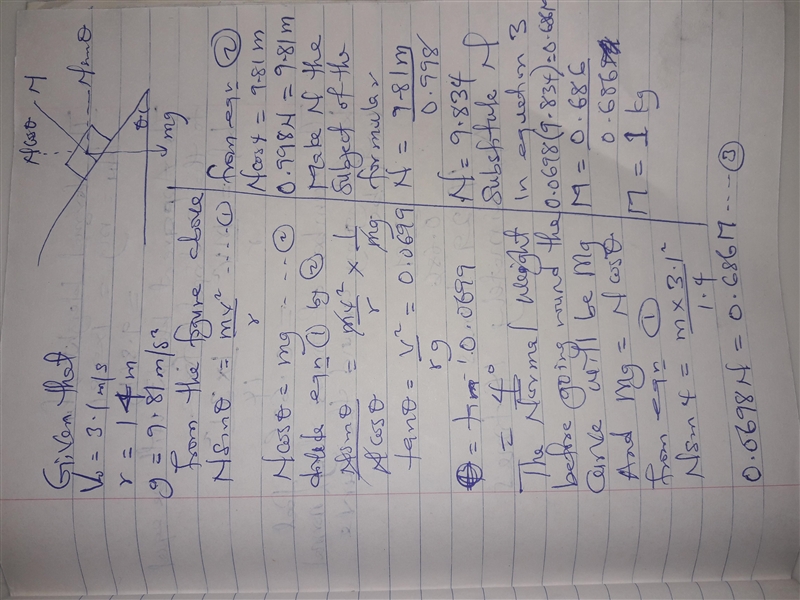 Ncosθ N
Nsinθ
θ
mg
Given that
V₀ = 3.1 m/s
r = 14 m
g = 9.81 m/s²
from the figure above
Nsinθ = mv²/r ---- ①
Ncosθ = mg ---- ②
divide eqn ① by ②
Nsinθ/Ncosθ = mv²/r × 1/mg
tanθ = v²/rg = 0.0699
θ = tan⁻¹ 0.0699
= 4°
The Normal weight
before going round the
curve will be Mg
And Mg = Ncosθ
from eqn ①
Nsin4 = m×3.1²/1.4
0.0698N = 0.686M ---- ③
from eqn ②
Ncos4 = 9.81m
0.998N = 9.81m
Make N the
Subject of the
formular
N = 9.81m/0.998
N = 9.834
Substitute N
In equation 3
0.0698(9.834)=0.686M
M = 0.686/0.686
M = 1 kg